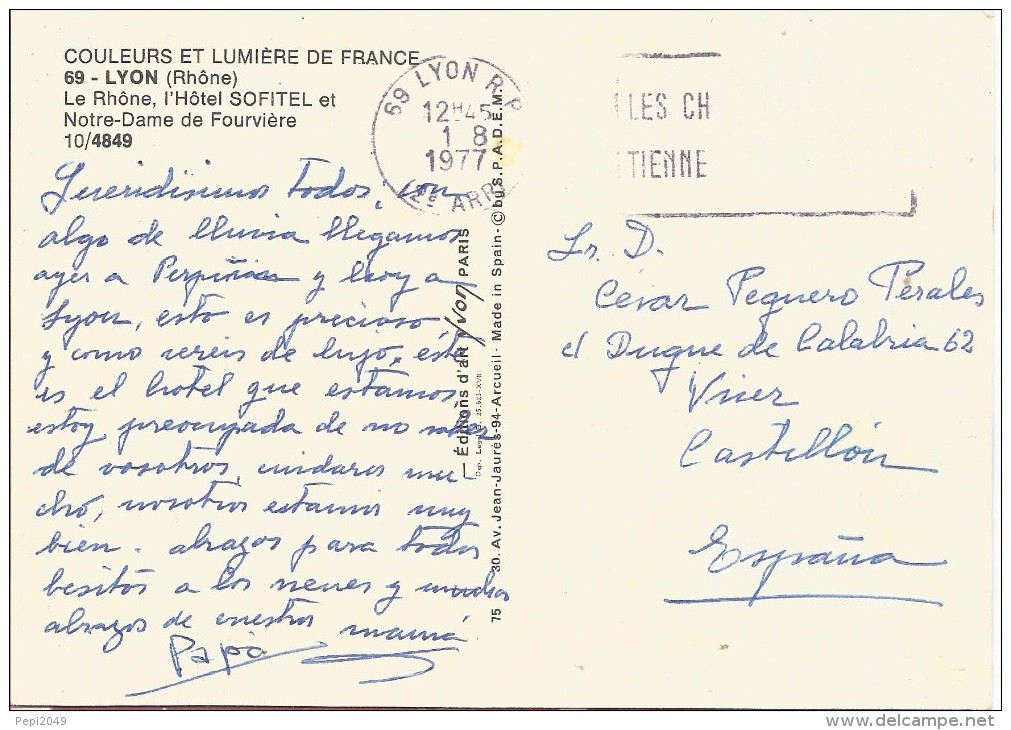 COULEURS ET LUMIÈRE DE FRANCE
69 - LYON (Rhône)
Le Rhône, l'Hôtel SOFITEL et
Notre-Dame de Fourvière
10/4849
Queridisimos todos; con
algo de lluvia llegamos
ayer a Perpiñan y hoy a
Lyon, esto es precioso,
y como vereis de lujo, este
es el hotel que estamos
estoy preocupada de no saber
de vosotros, cuidaros mu
cho, nosotros estamos muy
bien. abrazos para todos
besitos a los nenes y muchos
abrazos de vuestros mamá
Papá
69 LYON R.P
12H45
1 8
1977
(2e ARR
LES CH
TIENNE
Editions d'art Yvon, PARIS
Dep. Legal B. 25.623-XVIII
75 30. Av. Jean-Jaurès-94-Arcueil - Made in Spain - © by S.P.A.D.E.M.
Sr. D.
César Peguero Perales
c/ Duque de Calabria 62
Viver
Castellón
España
Pepi2049
delcampe.net